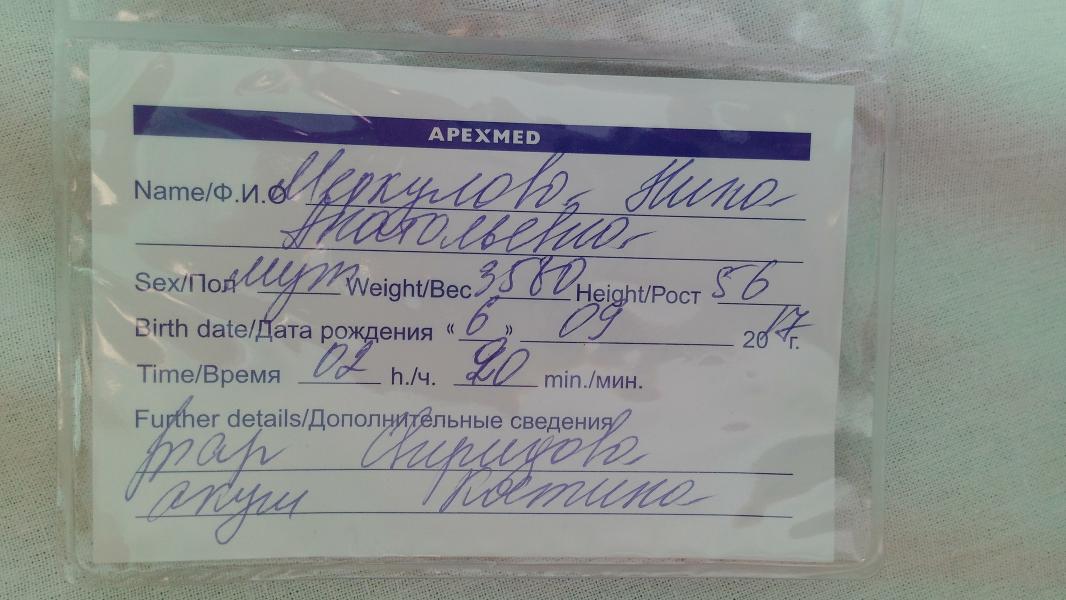 APEXMED
Name/Ф.И.О Меркулова Нина
Анатольевна
Sex/Пол муж Weight/Вес 3580 Height/Рост 56
Birth date/Дата рождения « 6 » 09 2017 г.
Time/Время 02 h./ч. 20 min./мин.
Further details/Дополнительные сведения
врар Спиридова
акуш Костина